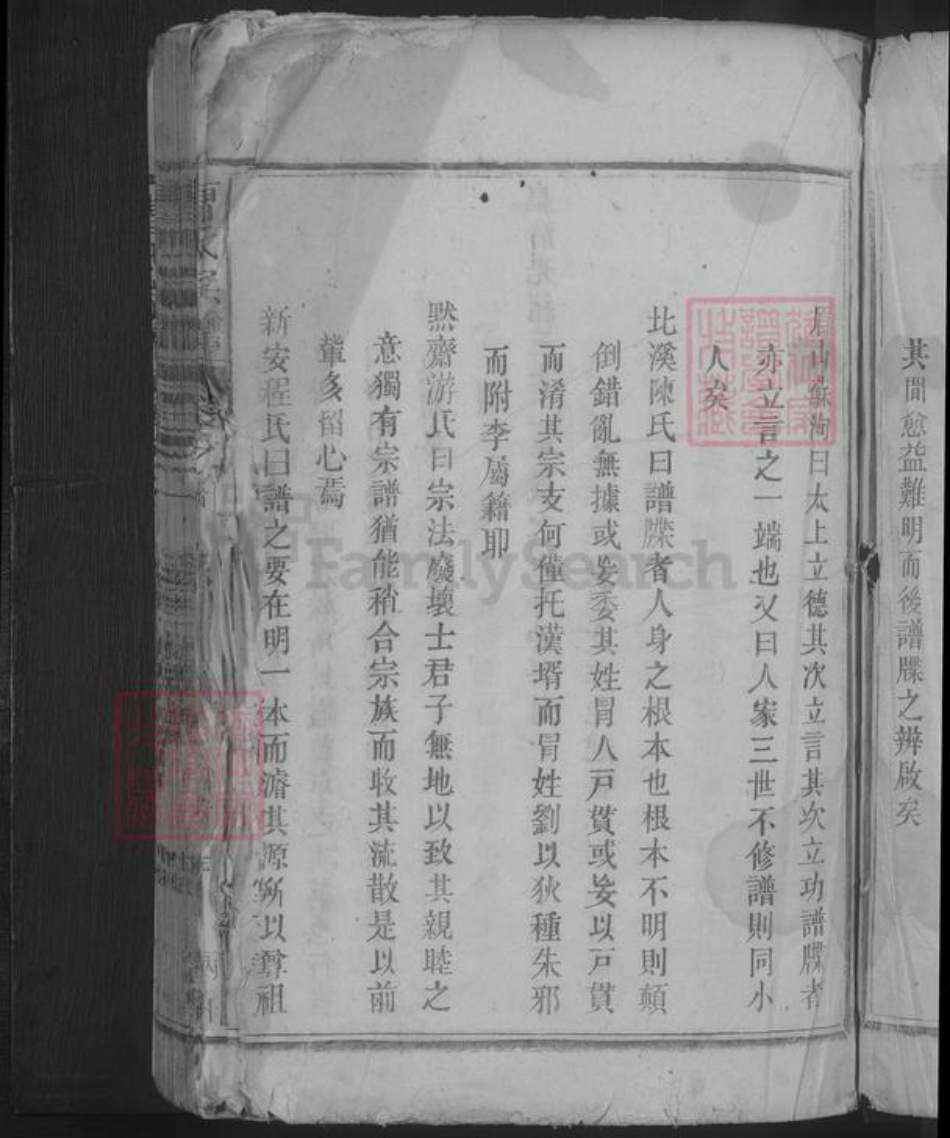 其間愈益難明而後譜牒之辨啟矣
眉山蘇洵曰太上立德其次立言其次立功譜牒者
亦立言之一端也又曰人家三世不修譜則同小
人矣
北溪陳氏曰譜牒者人身之根本也根本不明則顛
倒錯亂無據或妄委其姓冐人戸貫或妄以戸貫
而淆其宗支何僅托漢壻而冐姓劉以狄種朱邪
而附李屬籍耶
默齋游氏曰宗法廢壞士君子無地以致其親睦之
意獨有宗譜猶能稍合宗族而收其流散是以前
輩多留心焉
新安程氏曰譜之要在明一本而濬其源所以尊祖
FamilySearch